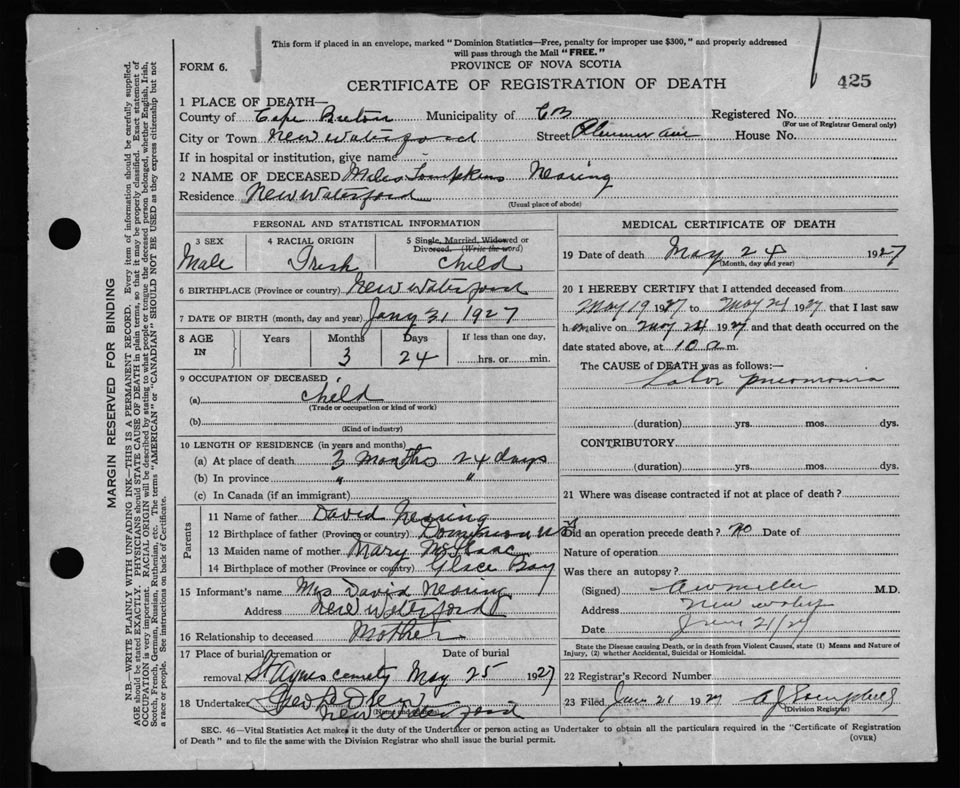 This form if placed in an envelope, marked "Dominion Statistics—Free, penalty for improper use $300," and properly addressed
will pass through the Mail "FREE."
FORM 6.
PROVINCE OF NOVA SCOTIA
CERTIFICATE OF REGISTRATION OF DEATH
425
1 PLACE OF DEATH—
County of Cape Breton Municipality of CB Registered No.
(For use of Registrar General only)
City or Town New Waterford Street House No.
If in hospital or institution, give name
2 NAME OF DECEASED Tompkins Nearing
Residence New Waterford
(Usual place of abode)
PERSONAL AND STATISTICAL INFORMATION
3 SEX 4 RACIAL ORIGIN 5 Single, Married, Widowed or
Divorced. (Write the word)
Male Irish Child
6 BIRTHPLACE (Province or country) New Waterford
7 DATE OF BIRTH (month, day and year) Jany 31 1927
8 AGE IN Years Months Days If less than one day,
3 24 hrs. or min.
9 OCCUPATION OF DECEASED
(a) child
(Trade or occupation or kind of work)
(b)
(Kind of industry)
10 LENGTH OF RESIDENCE (in years and months)
(a) At place of death 3 Months 24 days
(b) In province " "
(c) In Canada (if an immigrant)
Parents
11 Name of father David Nearing
12 Birthplace of father (Province or country) Dominion
13 Maiden name of mother Mary McIsaac
14 Birthplace of mother (Province or country) Glace Bay
15 Informant's name Mrs David Nearing
Address New Waterford
16 Relationship to deceased Mother
17 Place of burial, cremation or Date of burial
removal St Agnes cemety May 25 1927
18 Undertaker
New Waterford
MEDICAL CERTIFICATE OF DEATH
19 Date of death May 24 1927
(Month, day and year)
20 I HEREBY CERTIFY that I attended deceased from
May 19 1927 to May 24 1927 that I last saw
him alive on May 24 1927 and that death occurred on the
date stated above, at 10 a m.
The CAUSE of DEATH was as follows:—
Lobar pneumonia
(duration) yrs. mos. dys.
CONTRIBUTORY
(duration) yrs. mos. dys.
21 Where was disease contracted if not at place of death?
Did an operation precede death? No Date of
Nature of operation
Was there an autopsy?
(Signed) M.D.
Address
Date June 21/27
State the Disease causing Death, or in death from Violent Causes, state (1) Means and Nature of
Injury, (2) whether Accidental, Suicidal or Homicidal.
22 Registrar's Record Number
23 Filed June 21 1927
(Division Registrar)
SEC. 46—Vital Statistics Act makes it the duty of the Undertaker or person acting as Undertaker to obtain all the particulars required in the "Certificate of Registration
of Death" and to file the same with the Division Registrar who shall issue the burial permit.
(OVER)
MARGIN RESERVED FOR BINDING
N.B.—WRITE PLAINLY WITH UNFADING INK—THIS IS A PERMANENT RECORD. Every item of information should be carefully supplied.
AGE should be stated EXACTLY. PHYSICIANS should STATE CAUSE OF DEATH in plain terms, so that it may be properly classified. Exact statement of
OCCUPATION is very important. RACIAL ORIGIN will be described by stating to what people or tongue the deceased person belonged, whether English, Irish,
Scotch, French, German, Russian, Ruthenian, etc. The terms "AMERICAN" or "CANADIAN" SHOULD NOT BE USED as they express citizenship but not
a race or people. See instructions on back of Certificate.